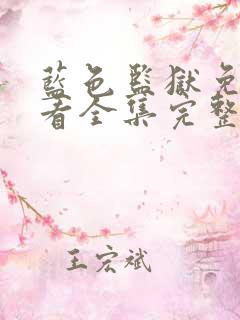 藍色監獄免
看全集完整
王宏斌